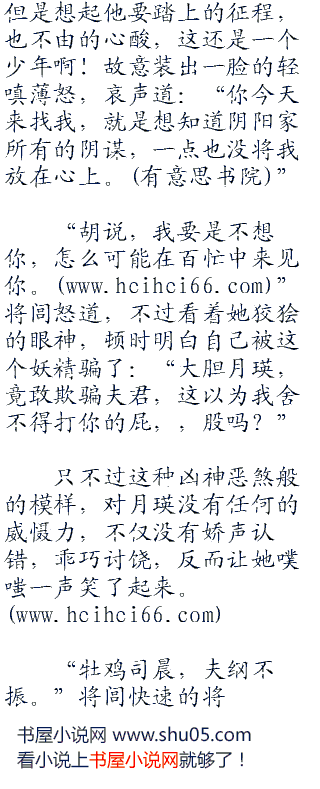 但是想起他要踏上的征程，
也不由的心酸，这还是一个
少年啊！故意装出一脸的轻
嗔薄怒，哀声道：“你今天
来找我，就是想知道阴阳家
所有的阴谋，一点也没将我
放在心上。(有意思书院)”
“胡说，我要是不想
你，怎么可能在百忙中来见
你。(www.hcihci66.com)”
将闾怒道，不过看着她狡狯
的眼神，顿时明白自己被这
个妖精骗了：“大胆月瑛，
竟敢欺骗夫君，这以为我舍
不得打你的屁，，股吗？”
只不过这种凶神恶煞般
的模样，对月瑛没有任何的
威慑力，不仅没有娇声认
错，乖巧讨饶，反而让她噗
嗤一声笑了起来。
(www.hcihci66.com)
“牡鸡司晨，夫纲不
振。”将闾快速的将
书屋小说网 www.shu05.com
看小说上书屋小说网就够了！